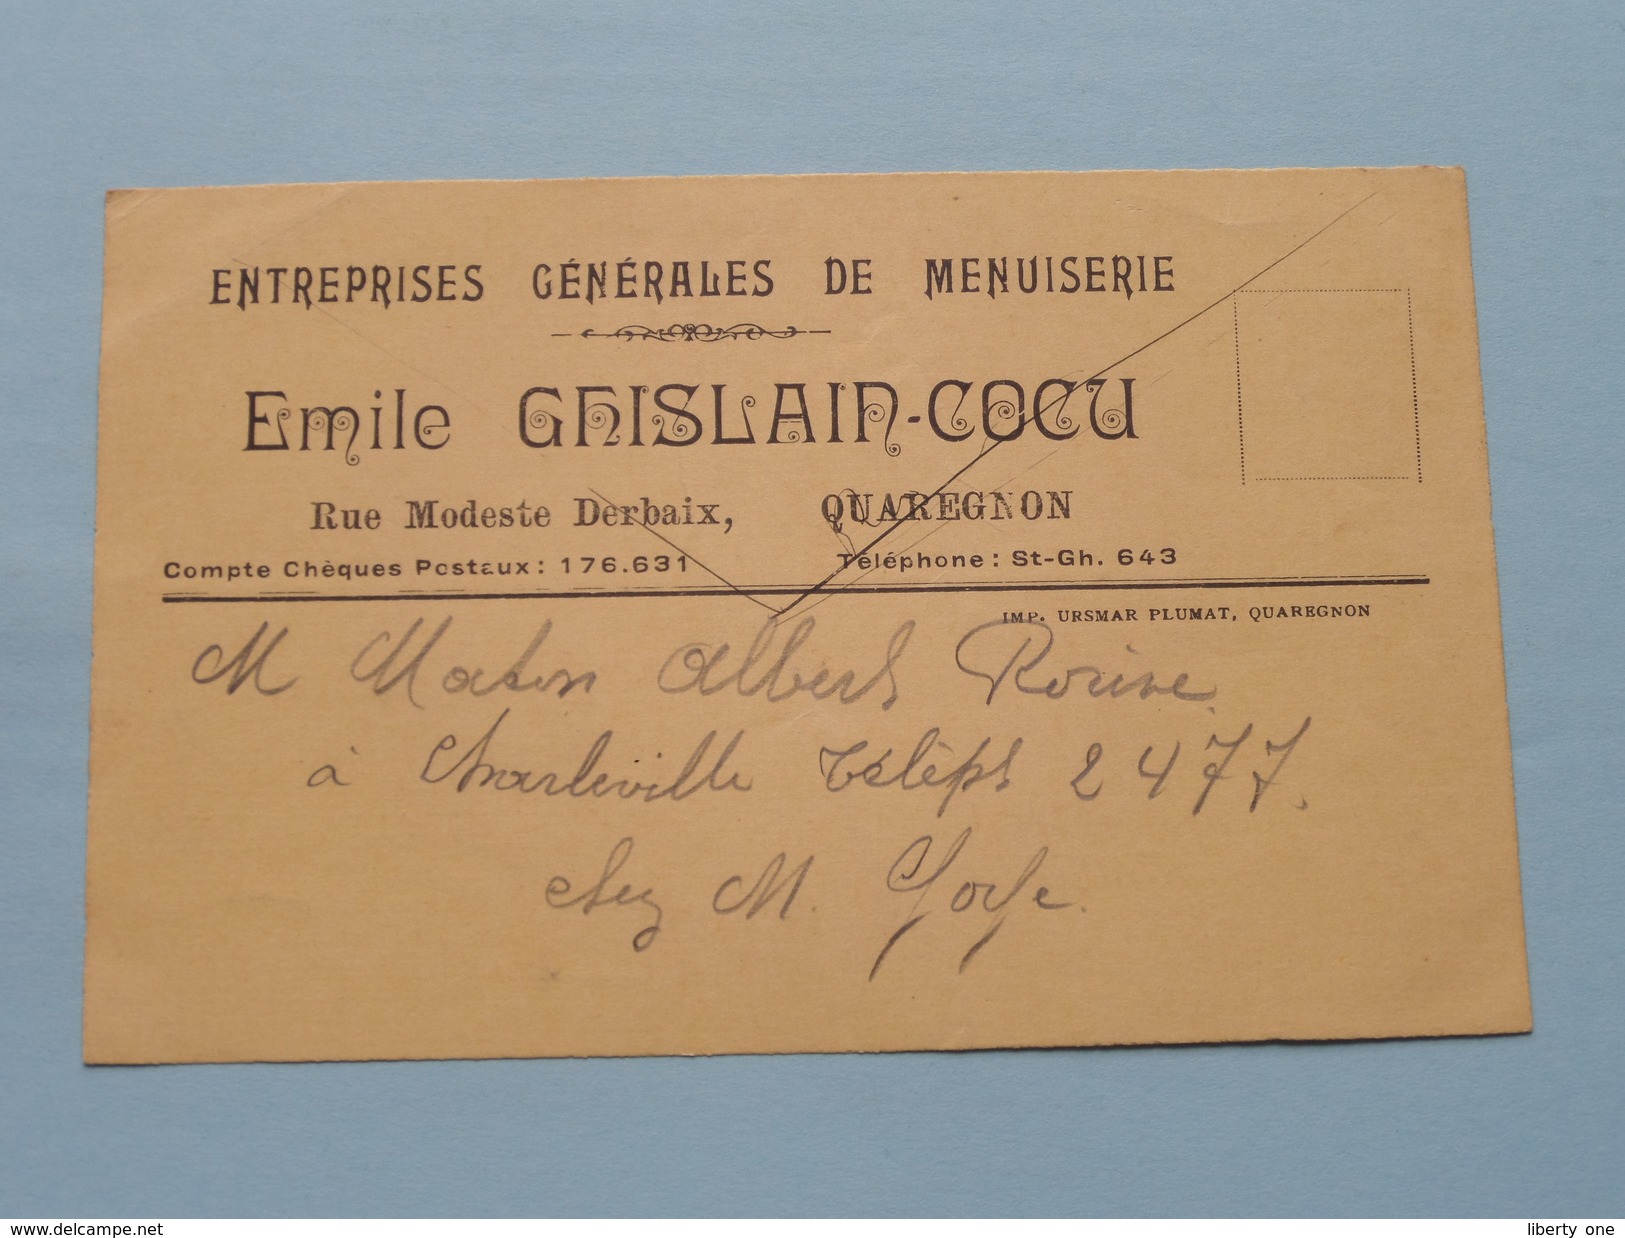 ENTREPRISES GÉNÉRALES DE MENUISERIE
Emile GHISLAIN-COCU
Rue Modeste Derbaix, QUAREGNON
Compte Chèques Postaux : 176.631 Téléphone : St-Gh. 643
IMP. URSMAR PLUMAT, QUAREGNON
M Maton Albert
à Charleville Téléph 2477.
chez M.
www.delcampe.net
liberty one